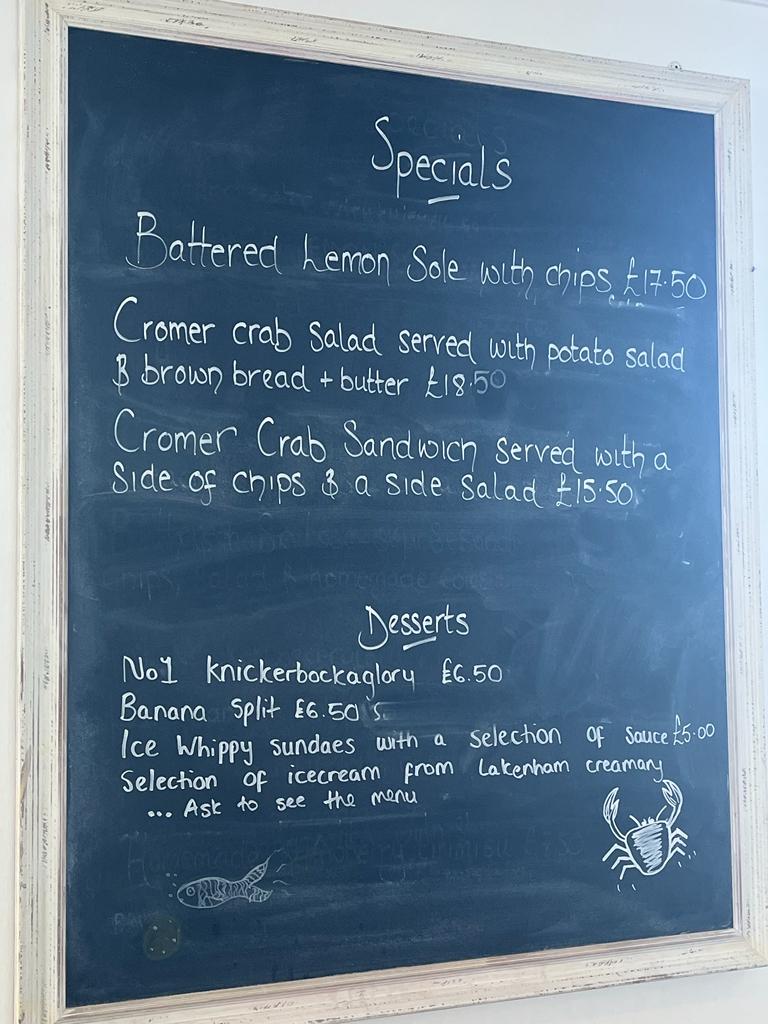 Specials
Battered Lemon Sole with chips £17.50
Cromer crab salad served with potato salad
& brown bread + butter £18.50
Cromer Crab Sandwich served with a
side of chips & a side salad £15.50
Desserts
No1 knickerbockaglory £6.50
Banana Split £6.50
Ice Whippy sundaes with a selection of sauce £5.00
Selection of icecream from Lakenham creamary
... Ask to see the menu